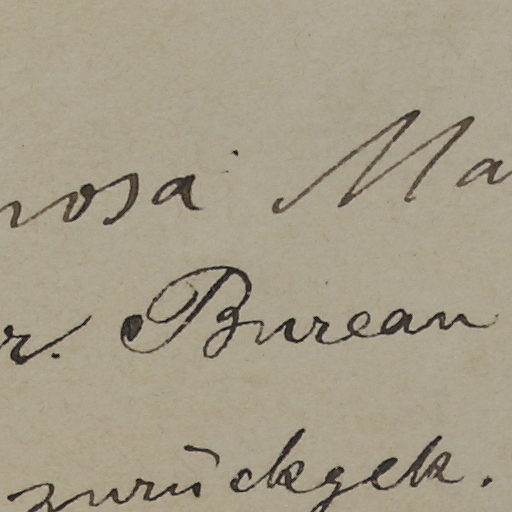 rosa Ma
r. Bureau
zurückgek.